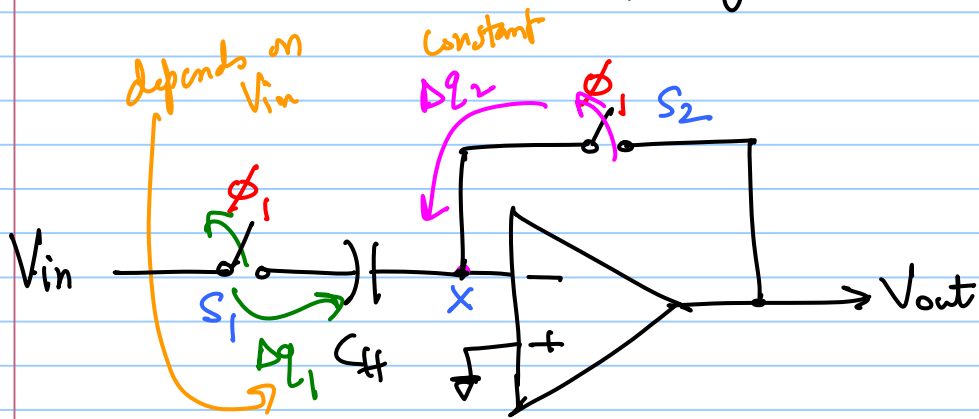 depends on
Vin
Constant
Δq2
ϕ1
S2
ϕ1
Vin
S1
Δq1
CH
X
−
+
Vout